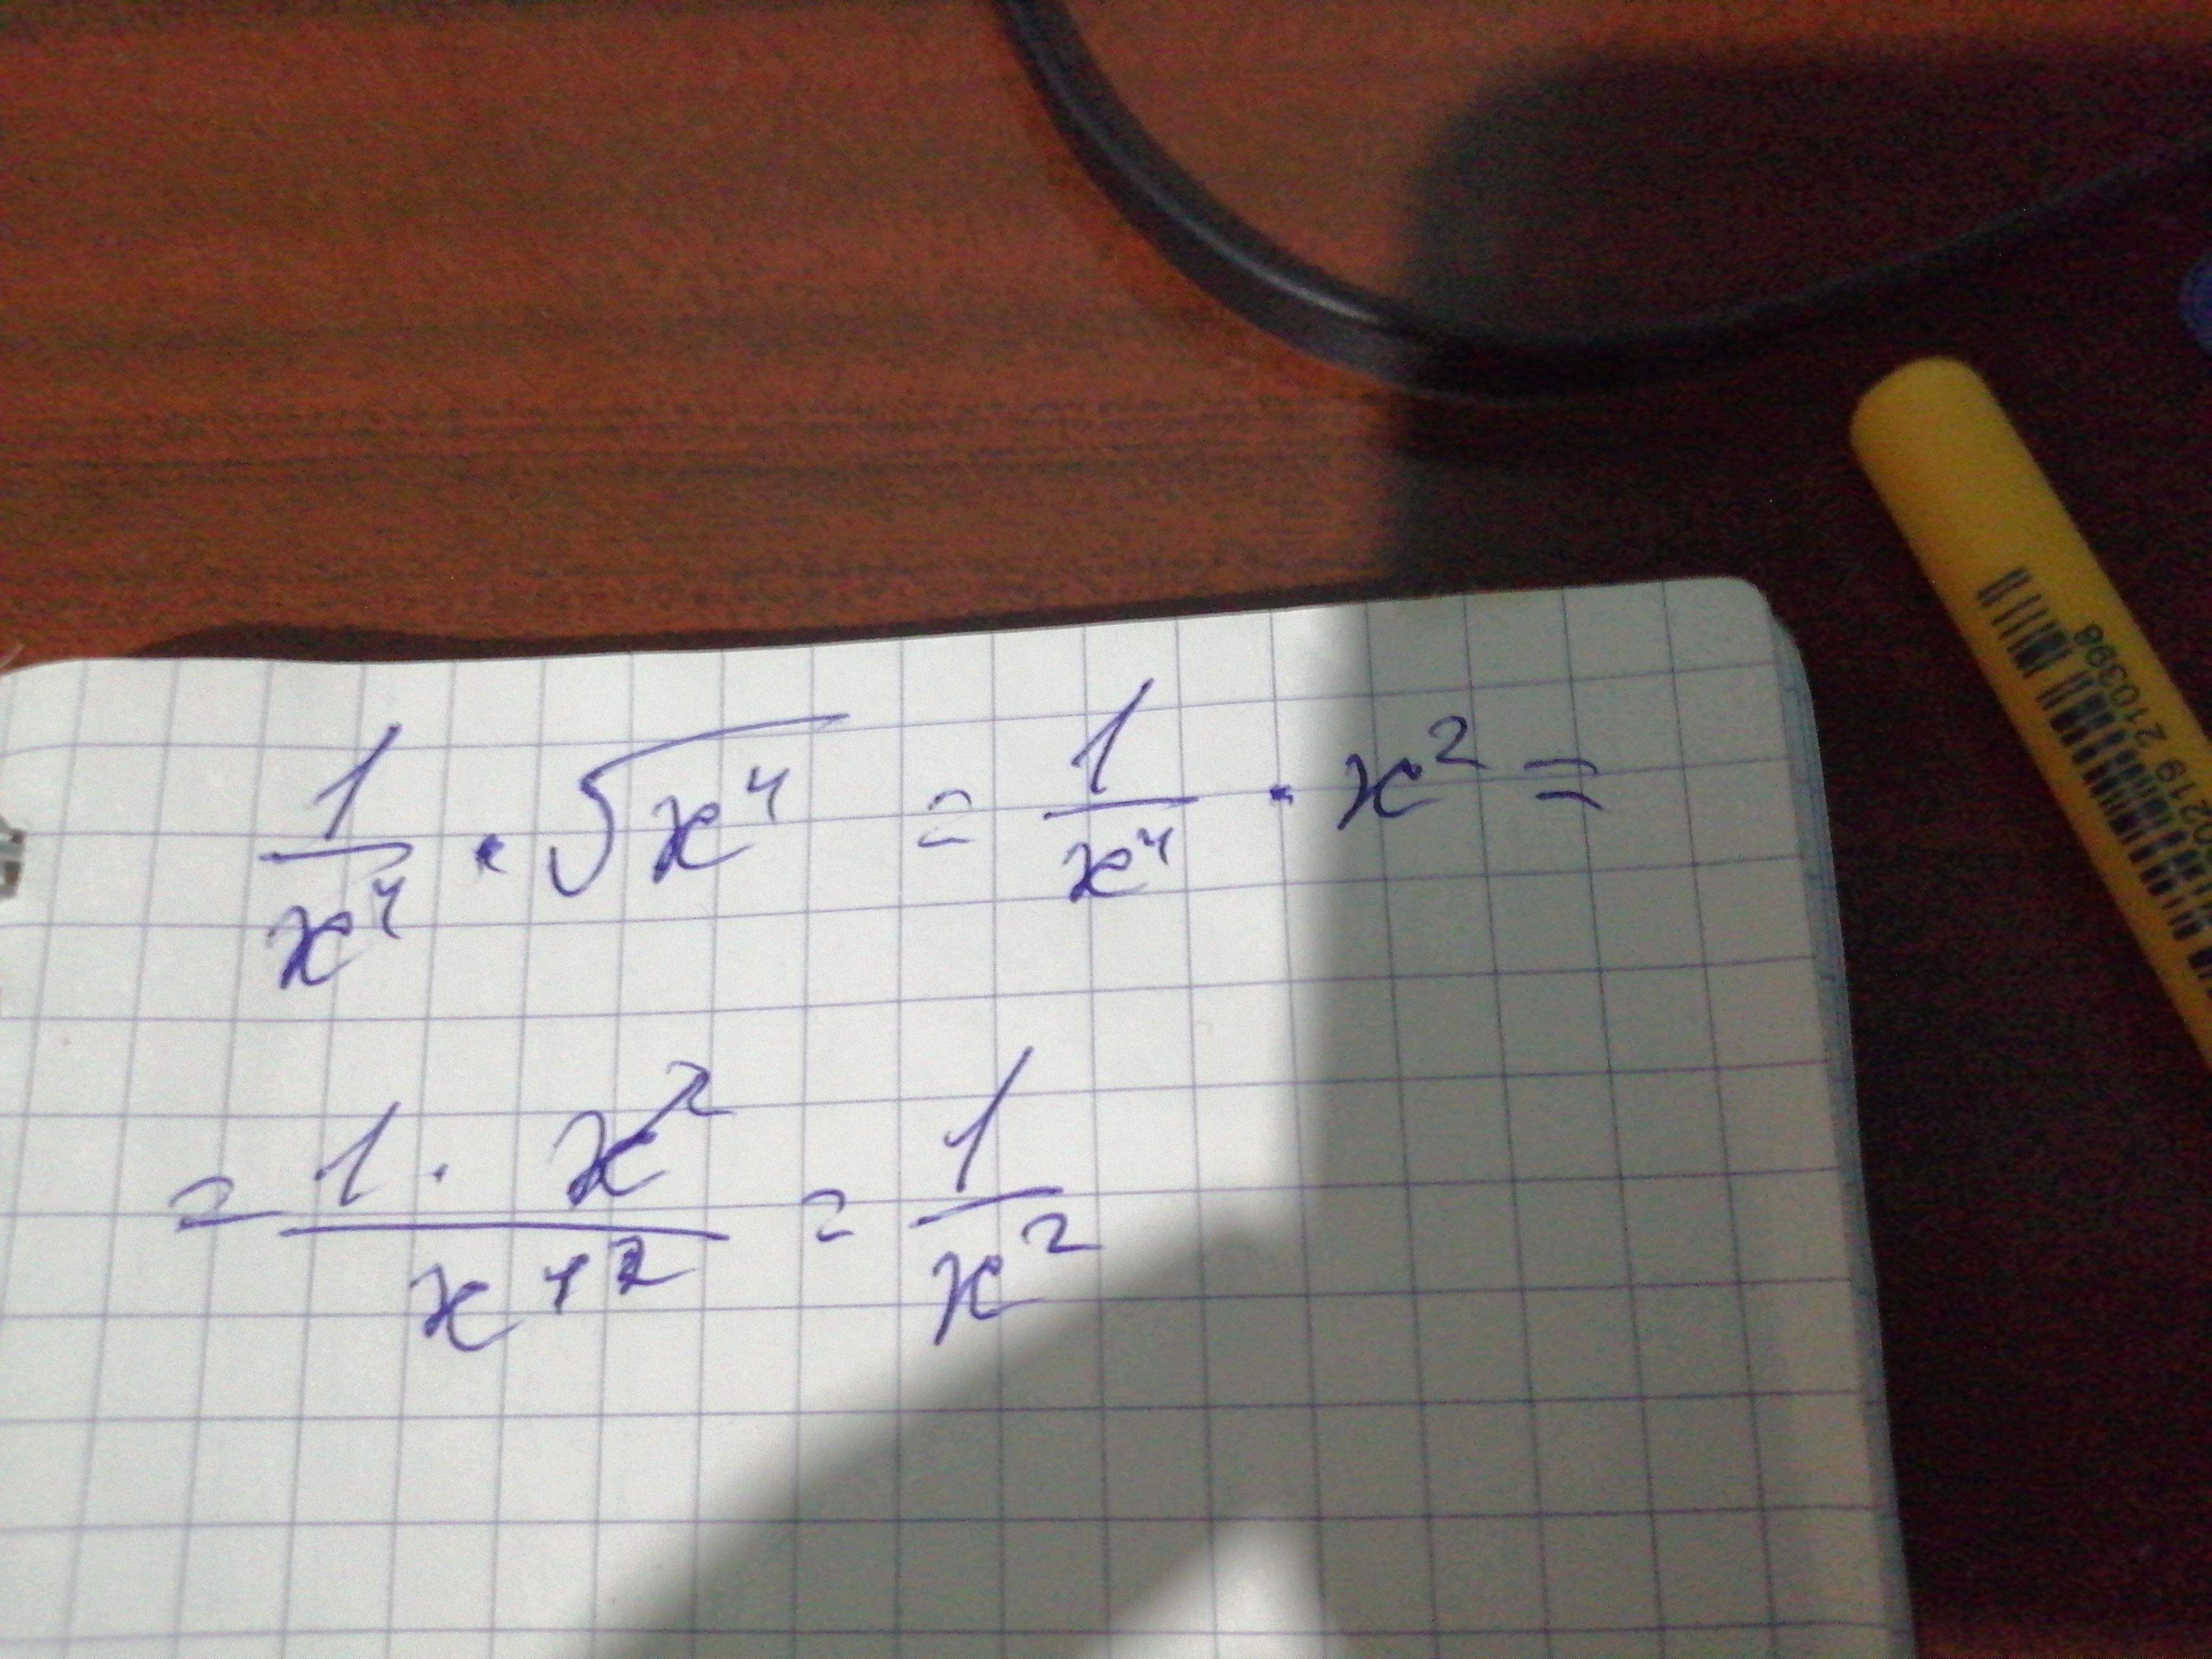 1/x⁴ · √x⁴ = 1/x⁴ · x² =
= 1 · x²/x⁴ ² = 1/x²
2103398